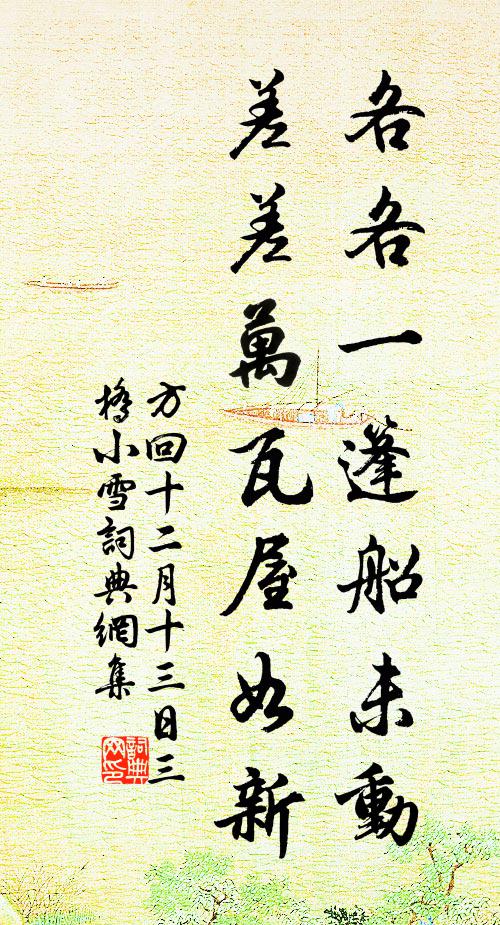 各各一蓬船未動
差差萬瓦屋如新
方回十二月十三日三
橋小雪詞典網集
詞典
网印